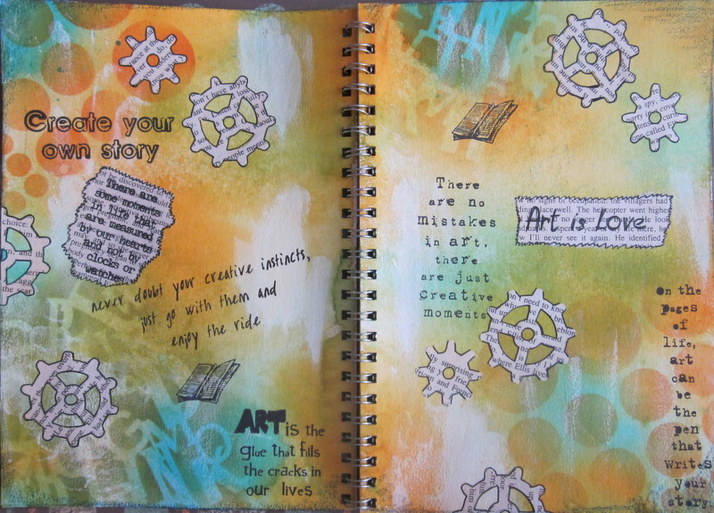 Create your
own story
There are
some moments
in life that
are measured
by our hearts
and not by
clocks or
watches
never doubt your creative instincts,
just go with them and
enjoy the ride
ART is the
glue that fills
the cracks in
our lives
There
are no
Mistakes
in art.
there
are just
Creative
moments
Art is Love
villagers had
The helicopter went higher
I'll never see it again. He identified
on the
pages
of
life,
art
can
be
the
pen
that
writes
your
story.